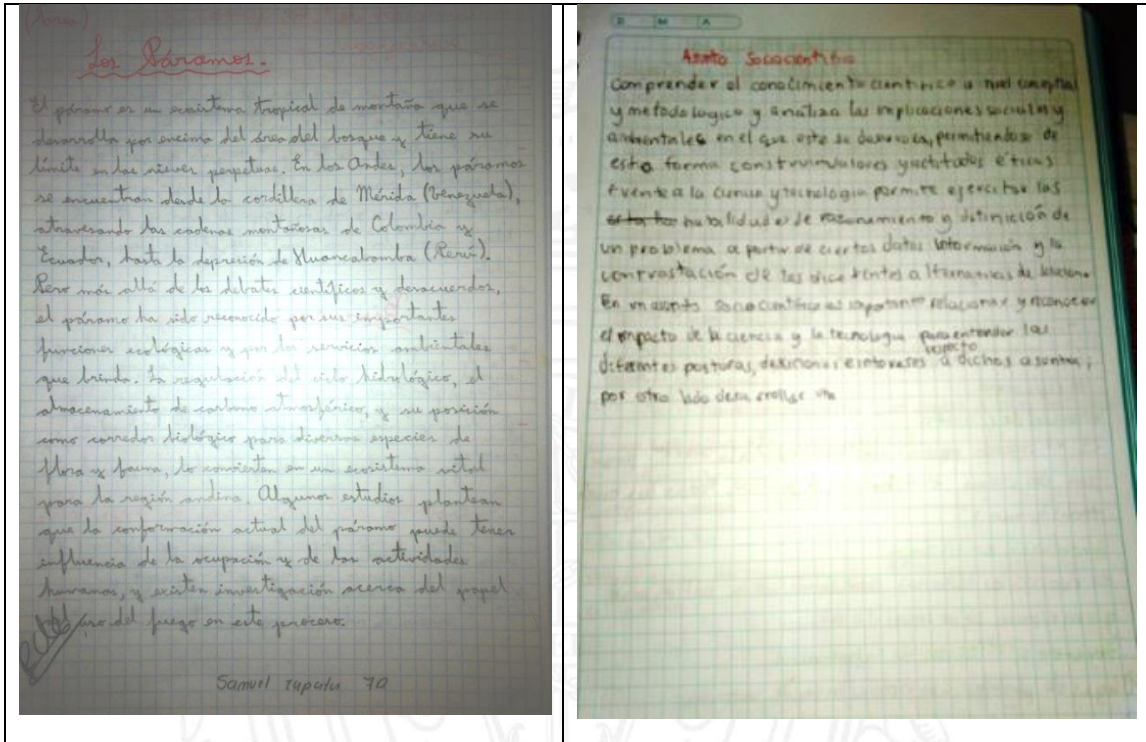 Los Páramos.
El páramo es un ecosistema tropical de montaña que se
desarrolla por encima del área del bosque y tiene su
límite en las nieves perpetuas. En los Andes, los páramos
se encuentran desde la cordillera de Mérida (Venezuela),
atravesando las cadenas montañosas de Colombia y
Ecuador, hasta la depresión de Huancabamba (Perú).
Pero más allá de los debates científicos y desacuerdos,
el páramo ha sido reconocido por sus importantes
funciones ecológicas y por los servicios ambientales
que brinda. La regulación del ciclo hidrológico, el
almacenamiento de carbono atmosférico, y su posición
como corredor biológico para diversas especies de
flora y fauna, lo convierten en un ecosistema vital
para la región andina. Algunos estudios plantean
que la conformación actual del páramo puede tener
influencia de la ocupación y de las actividades
humanas, y existen investigación acerca del papel
uso del fuego en este proceso.
Samuel 70
D M A
Asunto Sociocientífico
Comprender el conocimiento científico a nivel conceptual
y metodologico y analiza las implicaciones sociales y
ambientales en el que este se desarrolla, permitiendose de
esta forma construir valores y actitudes éticas
frente a la ciencia y tecnologia permite ejercitar las
habilidades de razonamiento y definición de
un problema a partir de ciertos datos información y la
contrastación de las alternativas de
En un asunto sociocientífico es importante relacionar y reconocer
el impacto de la ciencia y la tecnologia para entender las
diferentes posturas, decisiones e intereses respecto a dichos asuntos,
por otro lado desarrollar una